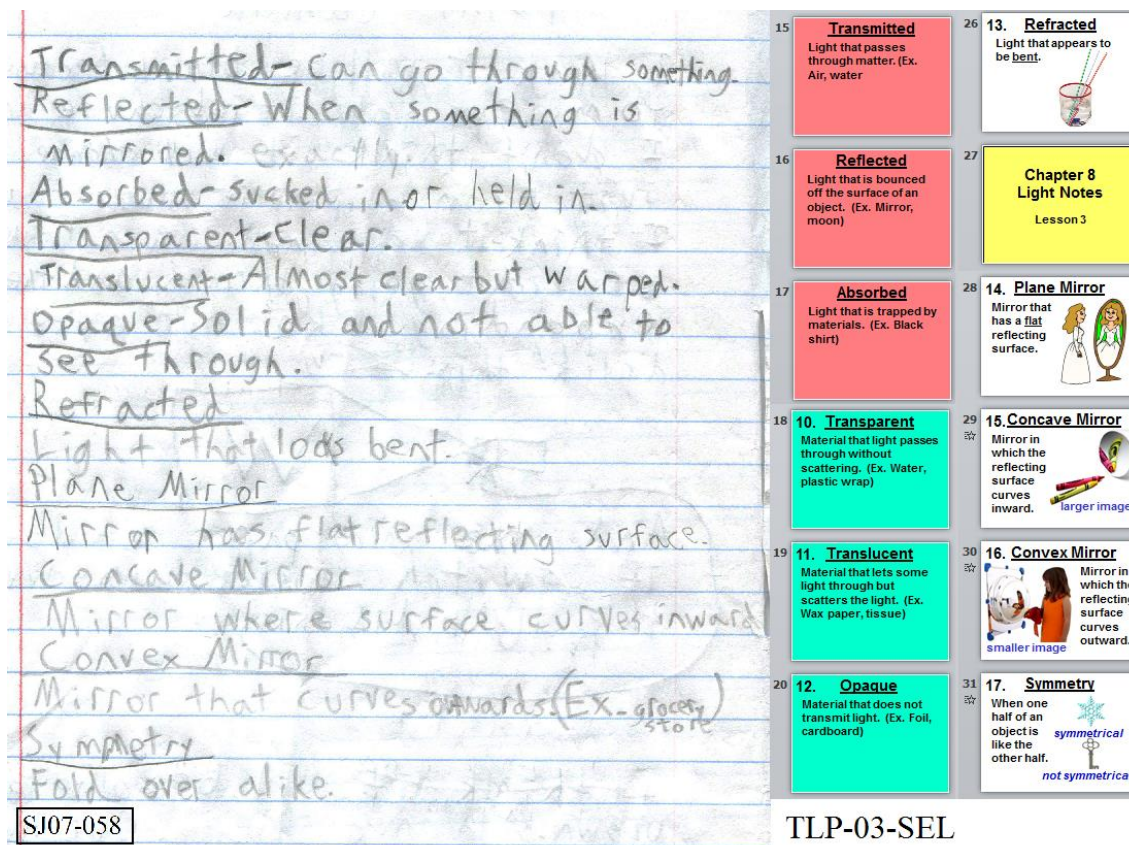 Transmitted- Can go through something.
Reflected- When something is
mirrored. exactly.
Absorbed- sucked in or held in.
Transparent-Clear.
Translucent- Almost clear but warped.
Opaque-Solid and not able to
see through.
Refracted
Light that loos bent.
Plane Mirror
Mirror has flat reflecting surface.
Concave Mirror
Miror where surface curves inward
Convex Mirror
Mirror that curves outwards. (Ex. grocery
store)
Symmetry
Fold over alike.
SJ07-058
15
Transmitted
Light that passes
through matter. (Ex.
Air, water
16
Reflected
Light that is bounced
off the surface of an
object. (Ex. Mirror,
moon)
17
Absorbed
Light that is trapped by
materials. (Ex. Black
shirt)
18
10. Transparent
Material that light passes
through without
scattering. (Ex. Water,
plastic wrap)
19
11. Translucent
Material that lets some
light through but
scatters the light. (Ex.
Wax paper, tissue)
20
12. Opaque
Material that does not
transmit light. (Ex. Foil,
cardboard)
26
13. Refracted
Light that appears to
be bent.
27
Chapter 8
Light Notes
Lesson 3
28
14. Plane Mirror
Mirror that
has a flat
reflecting
surface.
29
15. Concave Mirror
Mirror in
which the
reflecting
surface
curves
inward.
larger image
30
16. Convex Mirror
Mirror in
which the
reflecting
surface
curves
outward.
smaller image
31
17. Symmetry
When one
half of an
object is
like the
other half.
symmetrical
not symmetrical
TLP-03-SEL